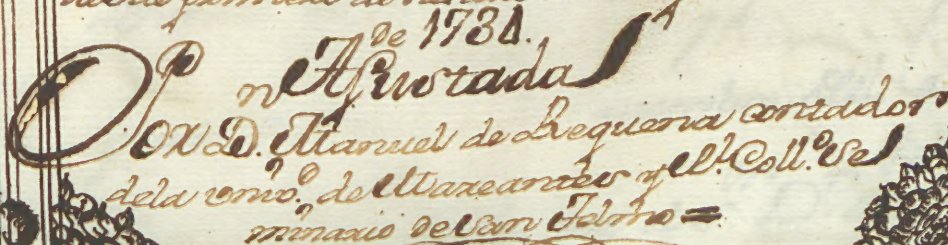 de 1731.
Ajustada
Por D. Manuel de Requena contador
dela univ.º de Mareantes y Rl. Coll.º Se
minario de San Telmo =